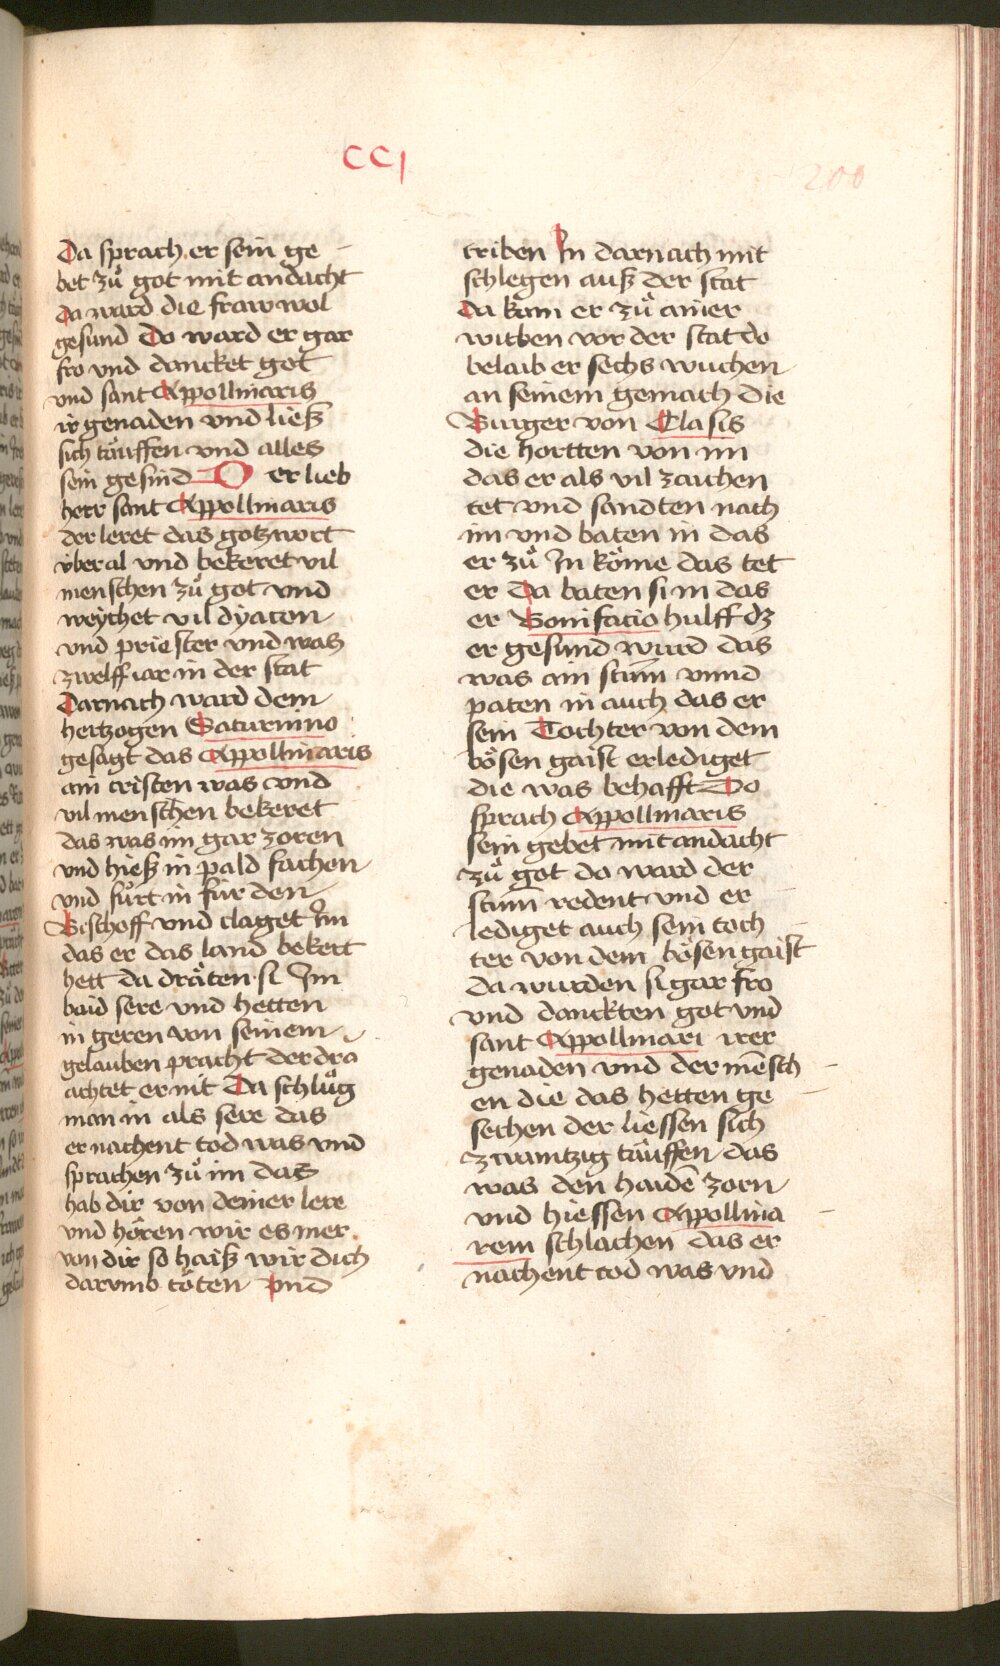 CCI
200
Da sprach er sein ge
bet zů got mit andacht
da ward die fraw wol
gesund Do ward er gar
fro vnd dancket got
vnd sant Appollinaris
ir genaden vnd ließ
sich täuffen vnd alles
sein gesind Der lieb
herr sant Appollinaris
der leret das gotzwort
vberal vnd bekeret vil
menschen zů got vnd
weychet vil dyacen
vnd priester vnd was
zwelff iar in der stat
Darnach ward dem
hertzogen Saturnino
gesagt das Appollinaris
ain cristen was vnd
vil menschen bekeret
das was im gar zoren
vnd hieß in pald fachen
vnd fůrt in für den
Bischoff vnd claget Im
das er das land bekert
hett da dräten si Im
baid sere vnd hetten
in geren von seinem
gelauben pracht der dra
achtet er nit Da schlůg
man in als sere das
er nachent tod was vnd
sprachen zů im das
hab dir von deiner lere
vnd hören wir es mer
von dir so haiß wir dich
darvmb töten Vnd
triben In darnach mit
schlegen auß der stat
Da kam er zů ainer
witben vor der stat do
belaib er sechs wuchen
an seinem gemach die
Burger von Clasis
die hortten von im
das er als vil zaichen
tet vnd sandten nach
im vnd baten in das
er zů In köme das tet
er Da baten si in das
er Bonifacio hulff dz
er gesund wurd das
was ain stum vnnd
paten in auch das er
sein Tochter von dem
bösen gaist erlediget
die was behafft Do
sprach Appollinaris
sein gebet mit andacht
zů got do ward der
stum redent vnd er
lediget auch sein toch
ter von dem bösen gaist
da wurden si gar fro
vnd danckten got vnd
sant Appollinari irer
genaden vnd der mēsch
en die das hetten ge
sechen der liessen sich
zwaintzig täuffen das
was den haidē zorn
vnd hiessen Appollina
rem schlachen das er
nachent tod was vnd